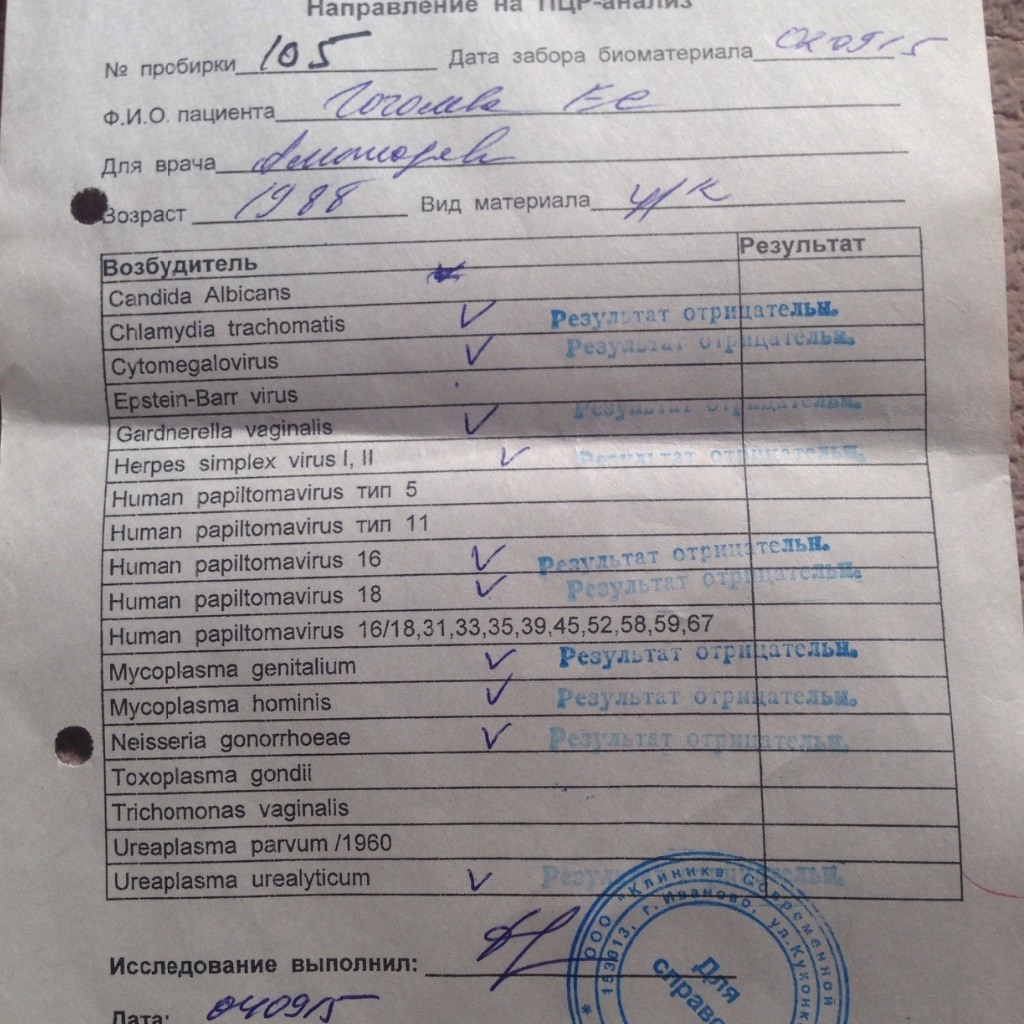 Направление на ПЦР-анализ
№ пробирки 105 Дата забора биоматериала 020915
Ф.И.О. пациента
Для врача
Возраст 1988 Вид материала ц/к
Возбудитель Результат
Candida Albicans
Chlamydia trachomatis ✓ Результат отрицательн.
Cytomegalovirus ✓ Результат отрицательн.
Epstein-Barr virus
Gardnerella vaginalis ✓ Результат отрицательн.
Herpes simplex virus I, II ✓ Результат отрицательн.
Human papiltomavirus тип 5
Human papiltomavirus тип 11
Human papiltomavirus 16 ✓ Результат отрицательн.
Human papiltomavirus 18 ✓ Результат отрицательн.
Human papiltomavirus 16/18,31,33,35,39,45,52,58,59,67
Mycoplasma genitalium ✓ Результат отрицательн.
Mycoplasma hominis ✓ Результат отрицательн.
Neisseria gonorrhoeae ✓ Результат отрицательн.
Toxoplasma gondii
Trichomonas vaginalis
Ureaplasma parvum /1960
Ureaplasma urealyticum ✓ Результат отрицательн.
* ООО "Клиника Современной
153013, г. Иваново, ул.Куконк
Для
справо
Исследование выполнил:
Дата: 040915